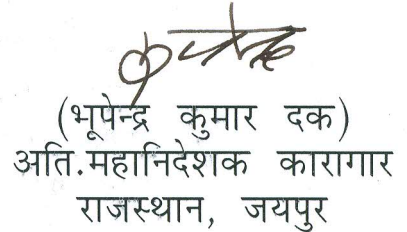 (भूपेन्द्र कुमार दक)
अति.महानिदेशक कारागार
राजस्थान, जयपुर